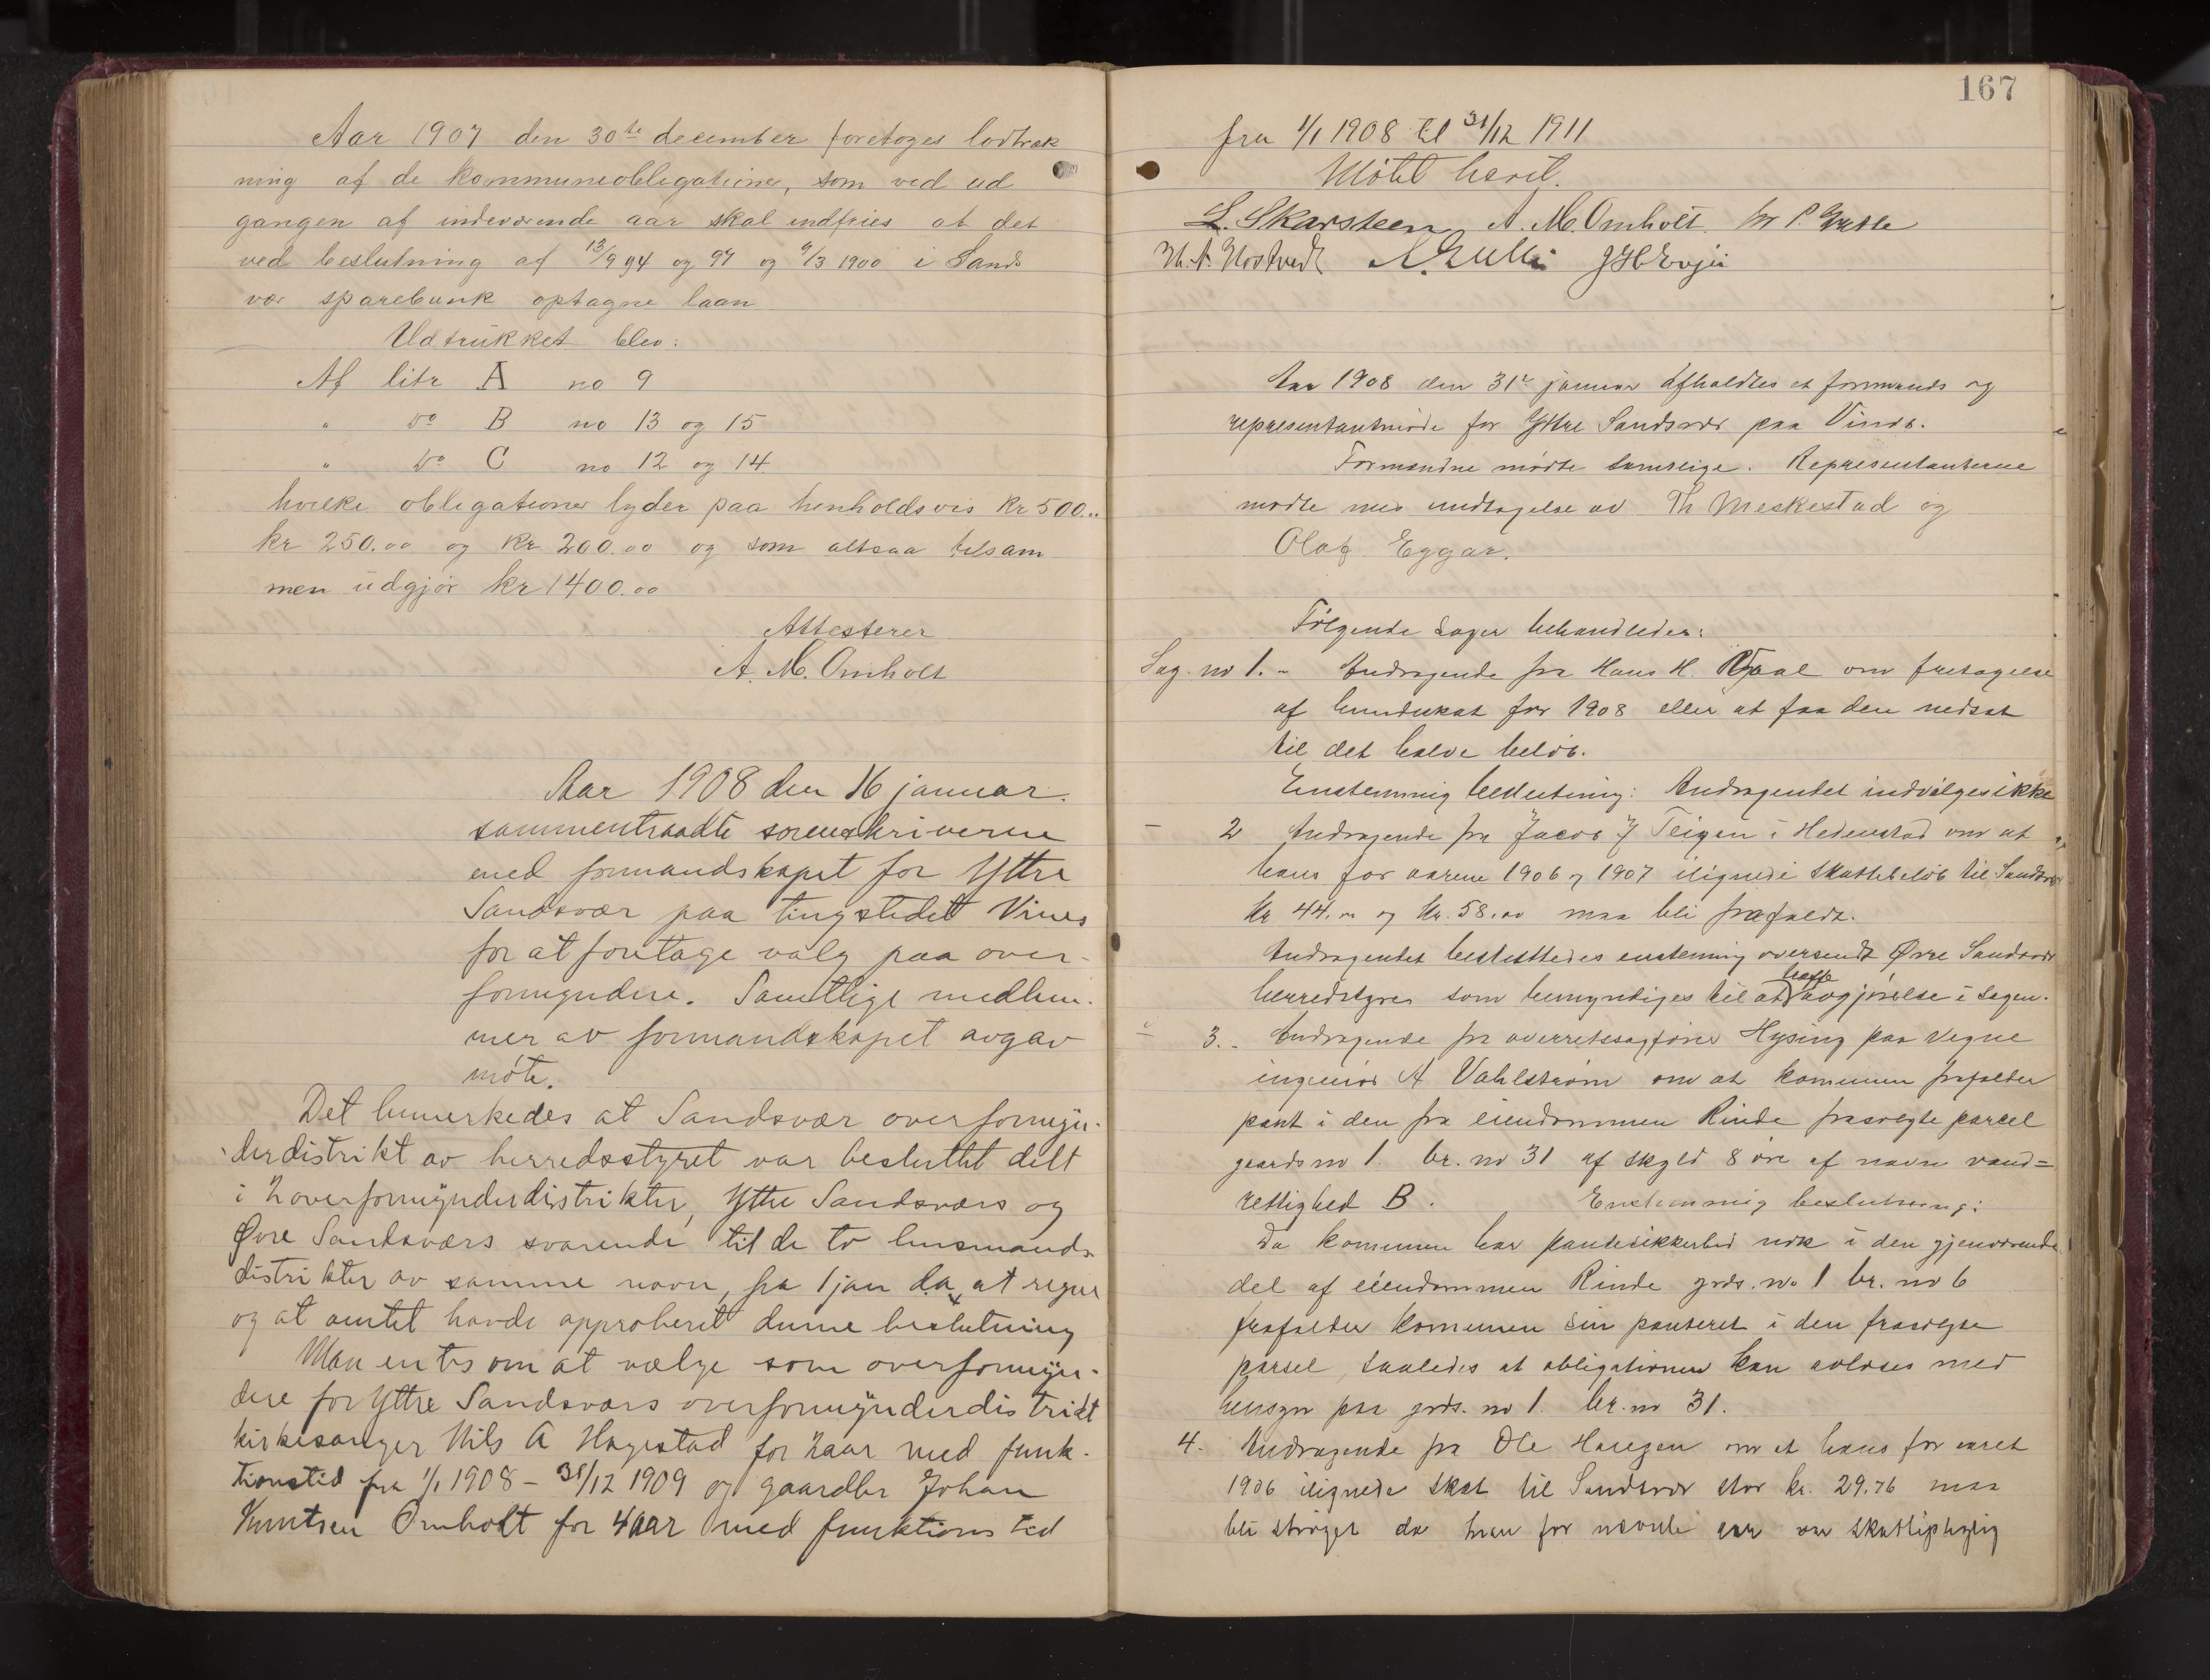 Aar 1907 den 30te december foretoges lodtræk
ning af de kommuneobligationer, som ved ud
gangen af indeværende aar skal indfries af det
ved beslutning af 13/9 94 og 97 og 9/3 1900 i Sands
vær sparebank optagne laan
Udtrukket blev:
Af litr A no 9
" do B no 13 og 15
" do C no 12 og 14
hvilke obligationer lyder paa henholdsvis Kr 500.00
kr 250.00 og Kr 200.00 og som altsaa tilsam
men udgjør kr 1400.00
Attesterer
A. M. Omholt
Aar 1908 den 16 januar.
sammentraadte sorenskriveren
med formandskapet for Yttre
Sandsvær paa tingstedet Vines
for at foretage valg paa over-
formyndere. Samtlige medlem-
mer av formandskapet avgav
møte.
Det bemerkedes at Sandsvær overformyn-
derdistrikt av herredsstyret var besluttet delt
i 2 overformynderdistrikter, Yttre Sandsværs og
Øvre Sandsværs svarende til de to lensmands
distrikter av samme navn, fra 1 jan d.a. at regne
og at amtet havde approberet denne beslutning
Man entes om at vælge som overformyn-
dere for Yttre Sandsværs overformynderdistrikt
kirkesanger Nils A Hagestad for 2 aar med funk-
tionstid fra 1/1 1908 - 31/12 1909 og gaardbr Johan
Knutsen Omholt for 4 aar med funktionstid
167
fra 1/1 1908 til 31/12 1911
Møtet hævet.
L. Skarsteen A. M. Omholt
Aar 1908 den 31te januar afholdtes et formands og
representantmøde for Yttre Sandsvær paa Vines.
Formændne mødte samtlige. Representanterne
mødte med undtagelse av Th Meskestad og
Olaf Eggar.
Følgende sager behandledes:
Sag. no 1. - Andragende fra Hans H. om fritagelse
af hundeskat for 1908 eller at faa den nedsat
til det halve beløb.
Enstemmig beslutning: Andragendet indvilges ikke
- 2 Andragende fra Jacob J Teigen i Hedenstad om at
hans for aarene 1906 og 1907 ilignede skattebeløb til Sandsvær
Kr 44.00 og Kr. 58.00 maa bli frafaldt.
Andragendet besluttedes enstemmig oversendt Øvre Sandsvær
herredstyre som bemyndiges til at træffe avgjørelse i sagen.
- 3. - Andragende fra overretssagfører Hysing paa vegne
ingeniør A Vahlstrøm om at kommunen frafalder
pant i den fra eiendommen Rinde frasolgte parcel
gaards no 1. br. no 31 af skyld 8 øre af navn vand=
rettighed B. Enstemmig beslutning:
Da kommunen har pantesikkerhed nok i den gjenværende
del af eiendommen Rinde grds. no 1 br. no 6
frafalder kommunen sin panteret i den frasolgte
parsel, saaledes at obligationen kan avløses med
hensyn paa grds. no 1. br. no 31.
4. Andragende fra Ole Haugen om at hans for aaret
1906 ilignede skat til Sandsvær stor kr. 29.76 maa
bli strøget da han for nævnte aar var skattepligtig